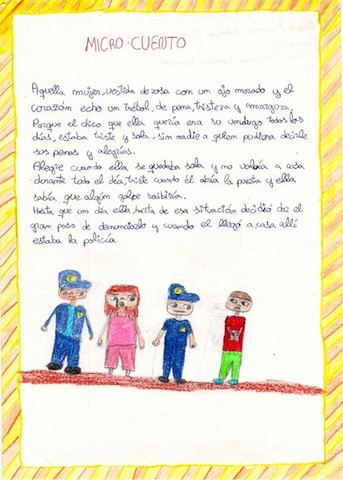 MICRO-CUENTO
Aquella mujer, vestida de rosa con un ojo morado y el
corazón echo un trébol, de pena, tristeza y amargura,
Porque el chico que ella quería era su verdugo todos los
días, estaba triste y sola, sin nadie a quien pudiera decirle
sus penas y alegrías.
Alegre cuando ella se quedaba sola y no volvía a casa
durante todo el día, triste cuando él abría la puerta y ella
sabía que algún golpe recibiría.
Hasta que un día ella, harta de esa situación decidió dar el
gran paso de denunciarlo y cuando él llegó a casa allí
estaba la policía